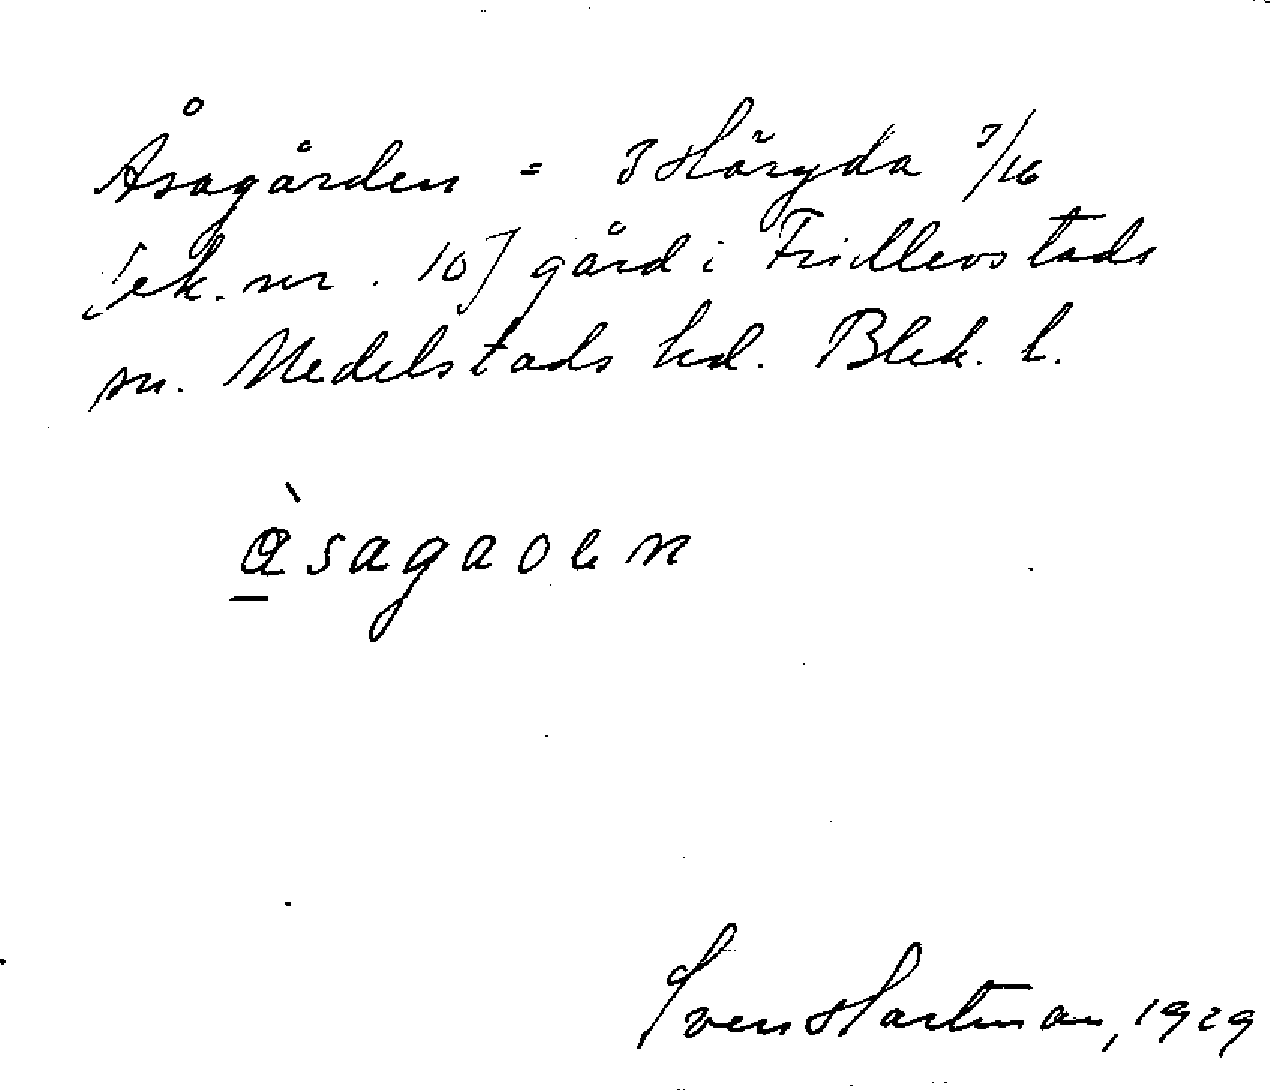 Åsagården = 3 Häryda 7/16
[ek. nr. 10] gård i Fridlevstads
sn. Medelstads hd. Blek. l.
Sven Hartman, 1929